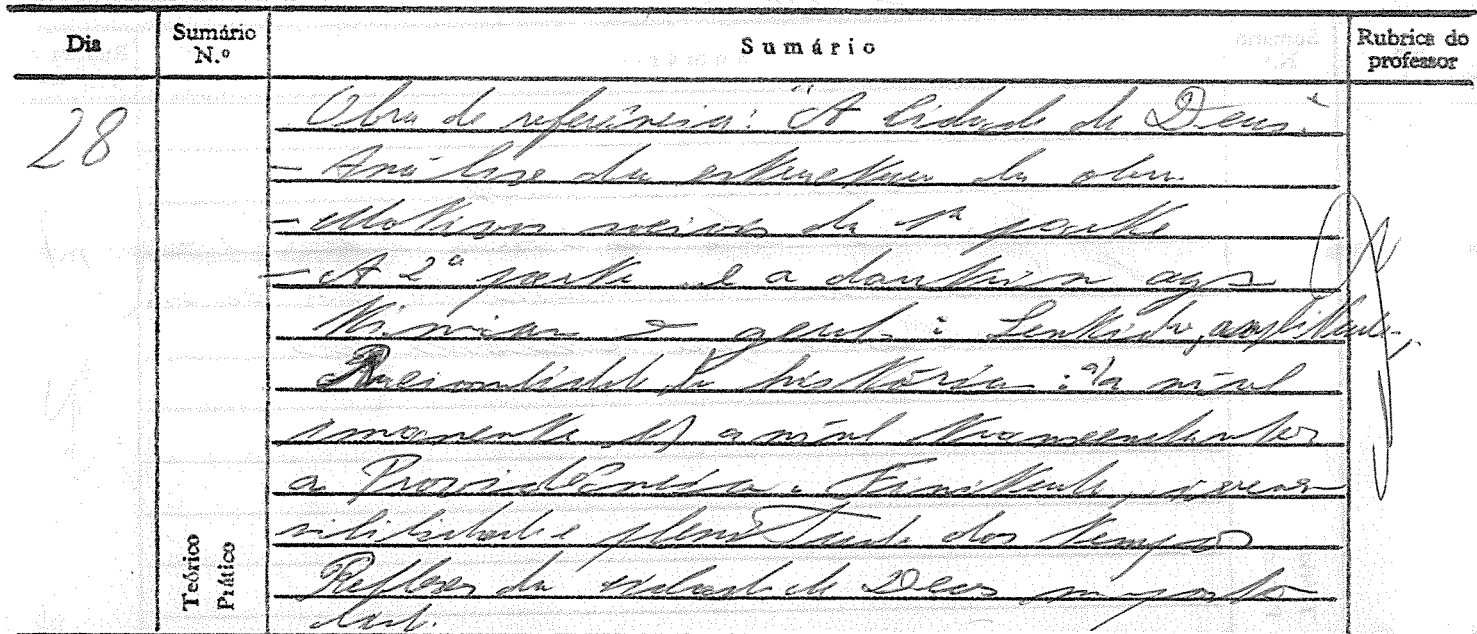 Dia
Sumário N.º
Sumário
Rubrica do professor
28
Obra de referência: "A Cidade de Deus".
- Análise da estructura da obra
- Motivos da 1ª parte
- A 2ª parte e a doutrina agos
tiniana geral: Sentido, amplitude,
Racionalidade da história: a) a nível
imanente b) a nível transcendente
a Providência. Finitude, irrever
sibilidade e plenitude dos tempos
Reflexos da cidade de Deus na poste
dade.
Teórico
Prático